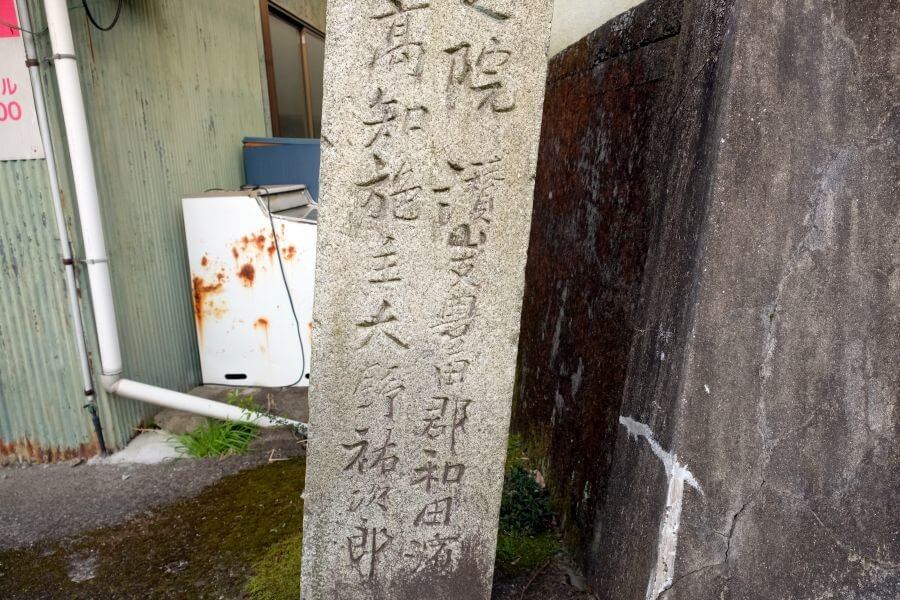 院 讃岐豊田郡和田濱
高知施主大野祐次郎
ル
00